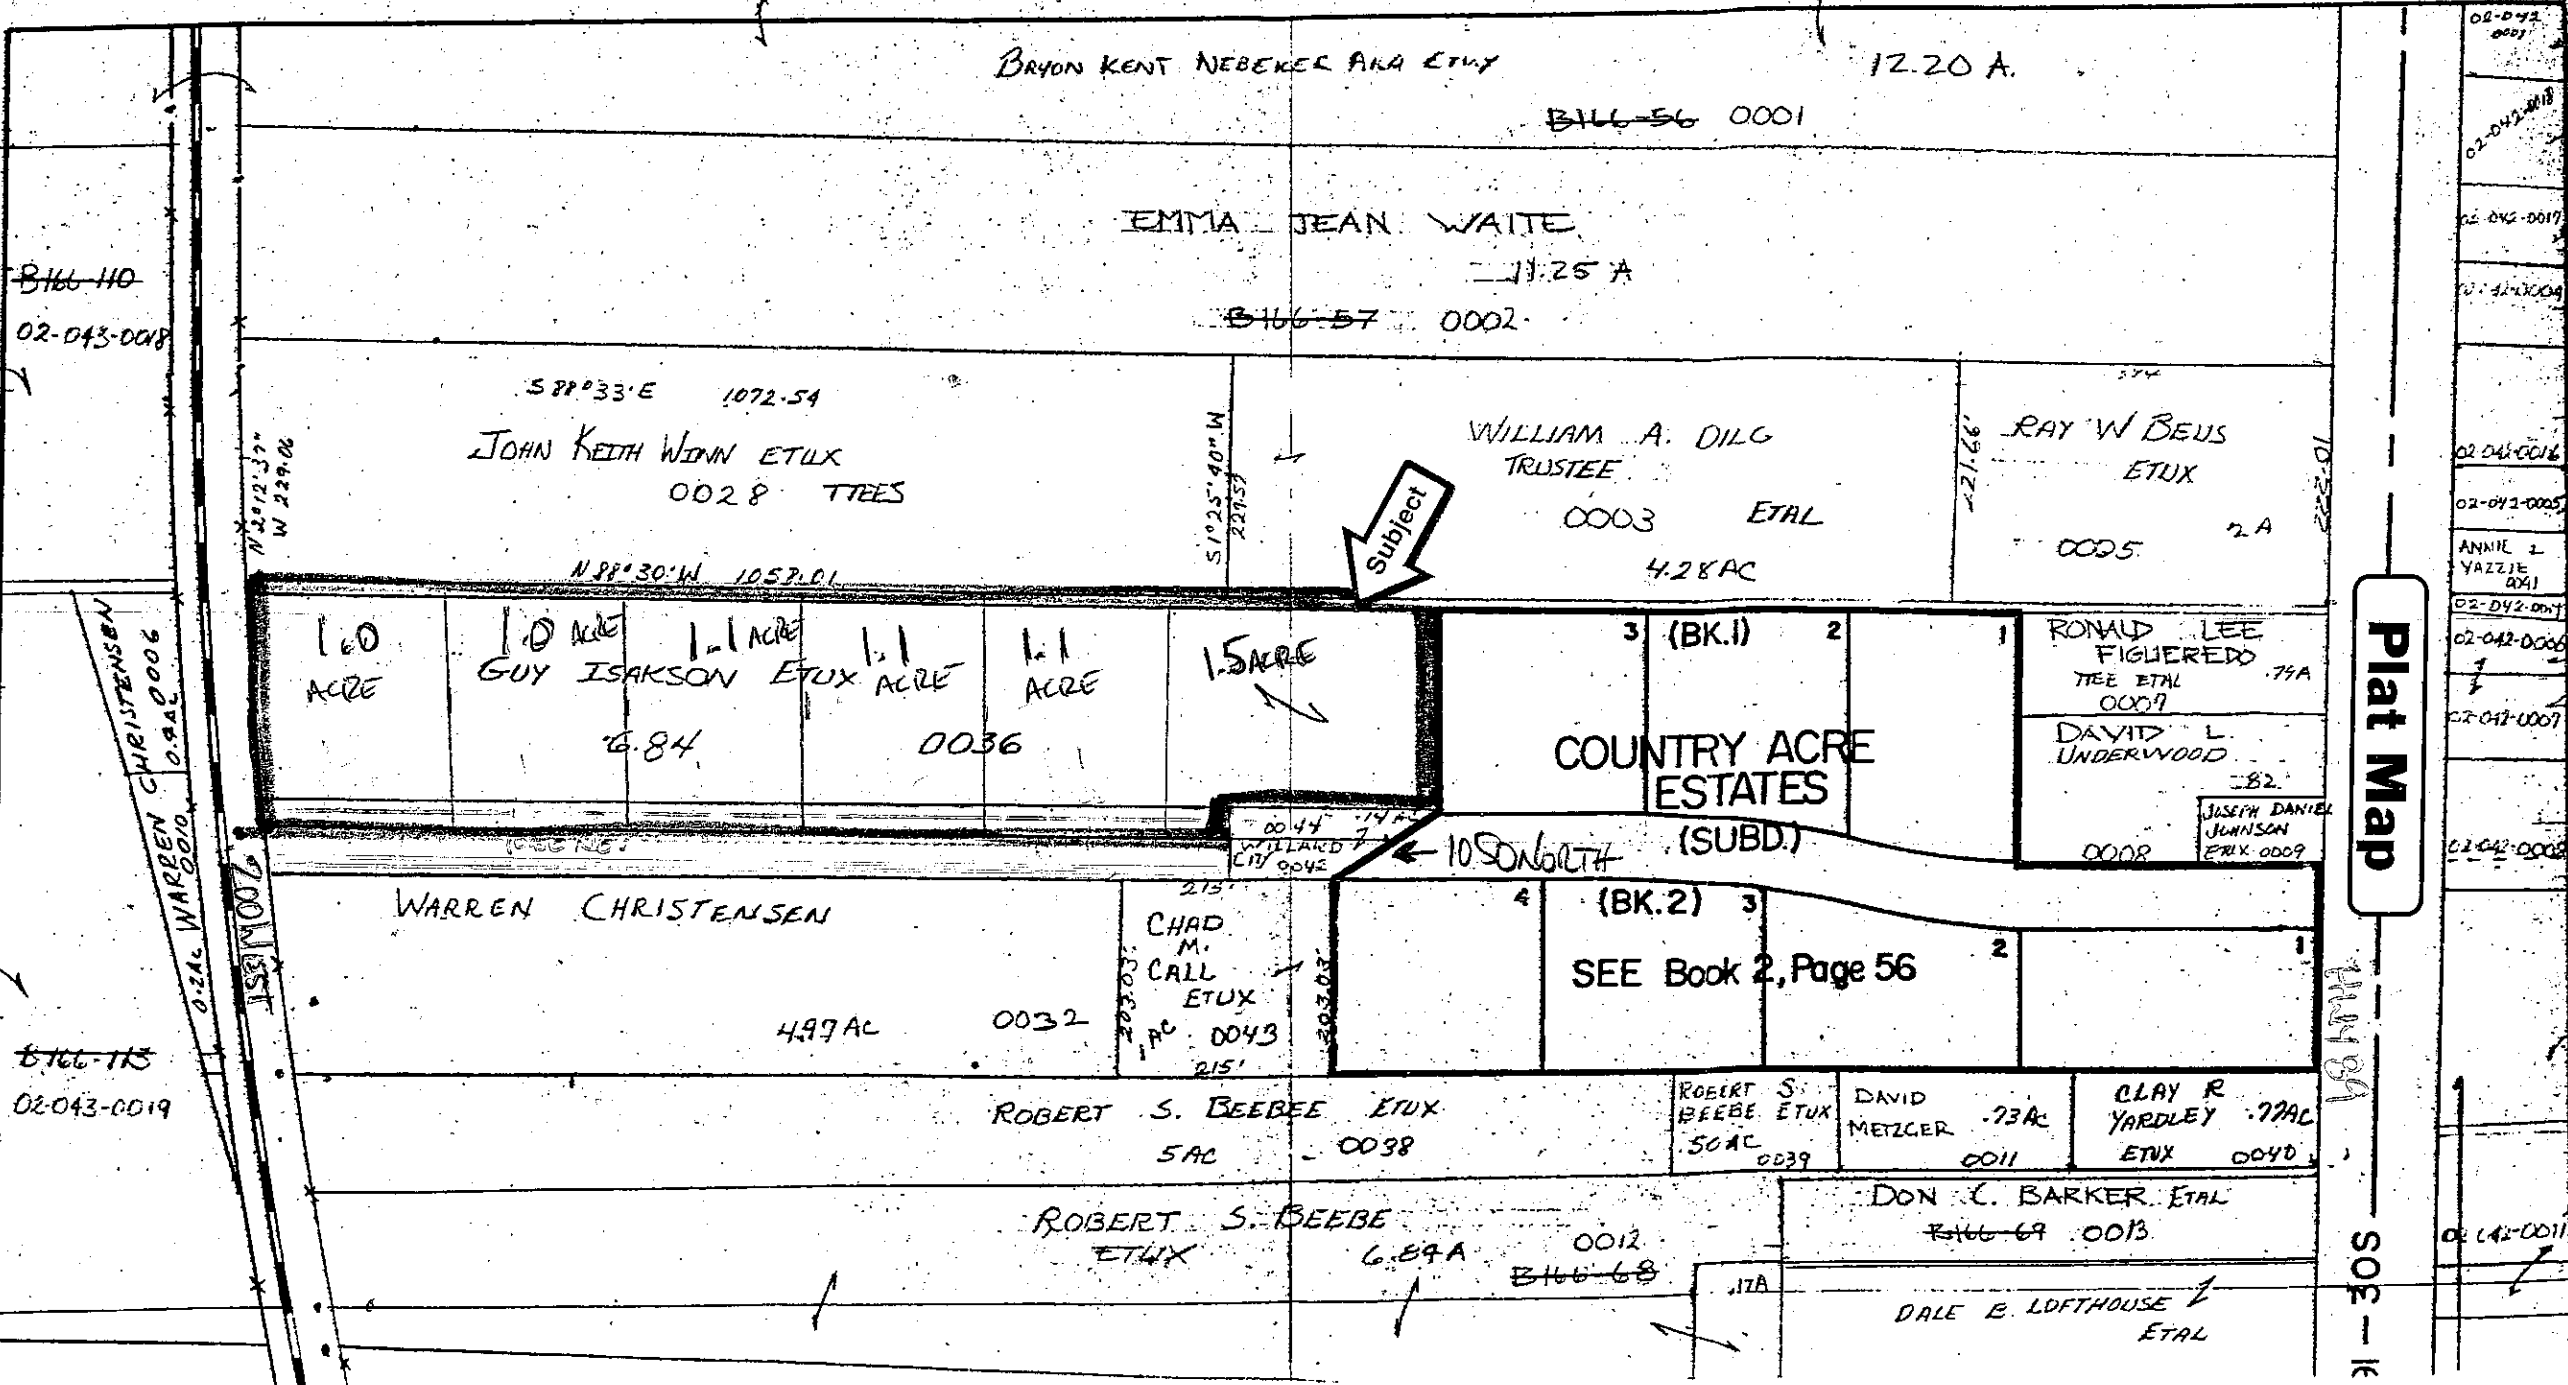 BRYON KENT NEBEKER AKA ETUX
12.20 A.
B166-56 0001
EMMA JEAN WAITE
11.25 A
B166-57 0002
B166-110
02-043-0018
S 88°33'E 1072.54
JOHN KEITH WINN ETUX
0028 TTEES
N 2°12'37" W 229.06
S 1°25'40" W
229.57
N 88°30'W 1058.01
WILLIAM A. DILG
TRUSTEE
0003 ETAL
4.28 AC
Subject
RAY W BEUS
ETUX
2 A
0025
1.0
ACRE
1.0 ACRE
1.1 ACRE
1.1
ACRE
1.1
ACRE
1.5 ACRE
GUY ISAKSON ETUX
6.84
0036
3 (BK.1) 2 1
COUNTRY ACRE
ESTATES
(SUBD.)
RONALD LEE
FIGUEREDO
TTEE ETAL .74A
0007
DAVID L.
UNDERWOOD
.82
0008
JOSEPH DANIEL
JOHNSON
ETUX 0009
Plat Map
0044 .14 A
WILLARD
CITY 0042
← 1050 NORTH
WARREN CHRISTENSEN
0.4 AC 0006
0.2 AC WARREN
0010
200 WEST
WARREN CHRISTENSEN
4.97 AC 0032
215'
CHAD
M.
CALL
ETUX
1 AC 0043
215'
203.03'
203.03'
4 (BK.2) 3 2 1
SEE Book 2, Page 56
HWY 89
B166-113
02-043-0019
ROBERT S. BEEBEE ETUX
5 AC 0038
ROBERT S.
BEEBE ETUX
.50 AC
0039
DAVID
METZGER .73 AC
0011
CLAY R
YARDLEY .77AC
ETUX 0040
ROBERT S. BEEBE
ETUX 6.84 A 0012
B166-68
DON C. BARKER ETAL
B166-69 0013
.17A
DALE E. LOFTHOUSE
ETAL
02-042
0001
02-042-0018
02-042-0017
02-042-0004
02-042-0016
02-042-0005
ANNIE L
YAZZIE
0041
02-042-0006
02-042-0007
02-042-0008
02-042-0011